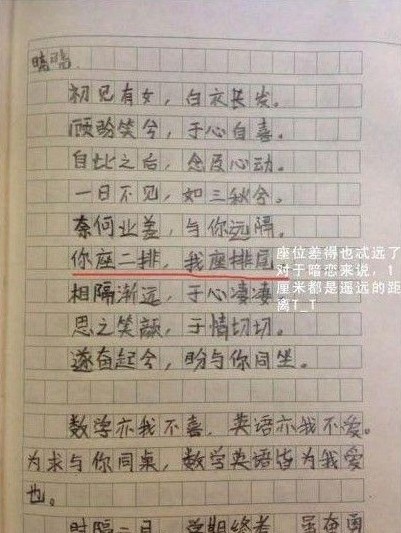 晓晓
初见有女，白衣长发。
顾盼笑兮，于心自喜。
自此之后，念及心动。
一日不见，如三秋兮。
奈何业差，与你远隔。
你座二排，我座排尾
相隔渐远，于心凄凄
思之笑颜，于情切切。
遂奋起兮，盼与你同坐。
座位差得也忒远了
对于暗恋来说，1
厘米都是遥远的距
离T_T
数学亦我不喜，英语亦我不爱。
为求与你同桌，数学英语皆为我爱
也。
时隔二月，学期终考，虽奋勇